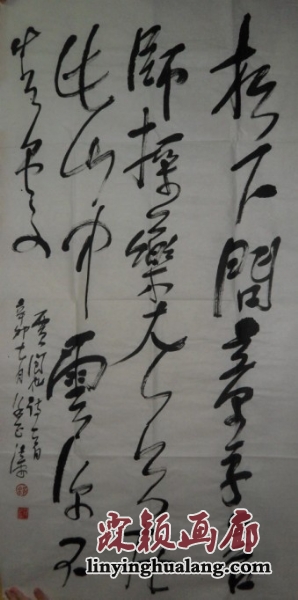 松下問童子言
師採藥去只在
此山中雲深不
知處
詩一首
辛卯七月
霖颖画廊
linyinghualang.com